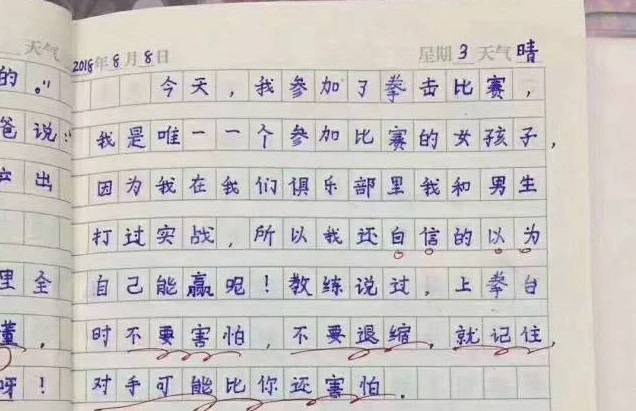 天气
2018年8月8日 星期3 天气晴
的。"
今天，我参加了拳击比赛，
爸说：
我是唯一一个参加比赛的女孩子，
出
因为我在我们俱乐部里我和男生
打过实战，所以我还自信的以为
里全
自己能赢呢！教练说过，上拳台
董，
时不要害怕，不要退缩，就记住，
呀！
对手可能比你还害怕．